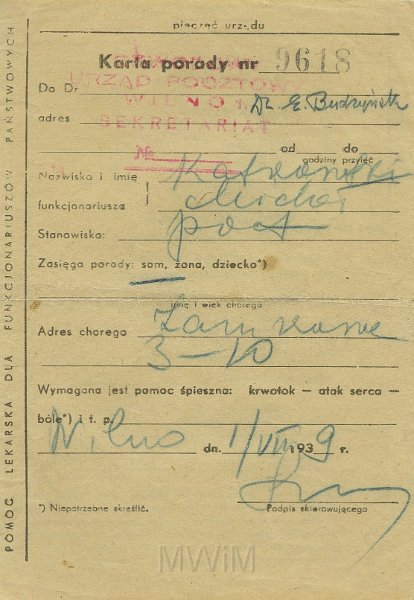 pieczęć urzędu
Karta porady nr 9618
URZĄD POCZTOW
WILNO 1
SEKRETARIAT
№
Do Dr Dr. E. Budzyńsk
adres
od do
godziny przyjęć
Nazwisko i imię
funkcjonariusza Michał
Stanowisko: poczt
Zasięga porady: sam, żona, dziecko*)
imię i wiek chorego
Adres chorego
3-10
Wymagana jest pomoc śpieszna: krwotok — atak serca —
bóle*) i t. p.
Wilno dn. 1/VIII 1939 r.
*) Niepotrzebne skreślić.
Podpis skierowującego
POMOC LEKARSKA DLA FUNKCJONARIUSZÓW PAŃSTWOWYCH
MWiM